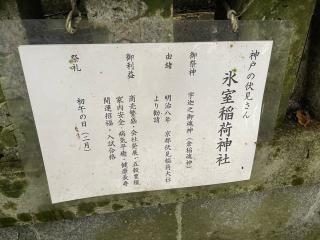 神戸の伏見さん
氷室稲荷神社
御祭神 宇迦之御魂神(倉稲魂神)
由緒 明治八年 京都伏見稲荷大社
より勧請
御利益 商売繁盛・会社発展・五穀豊穣
家内安全・病気平癒・健康長寿
開運招福・入試合格
祭礼 初午の日(二月)